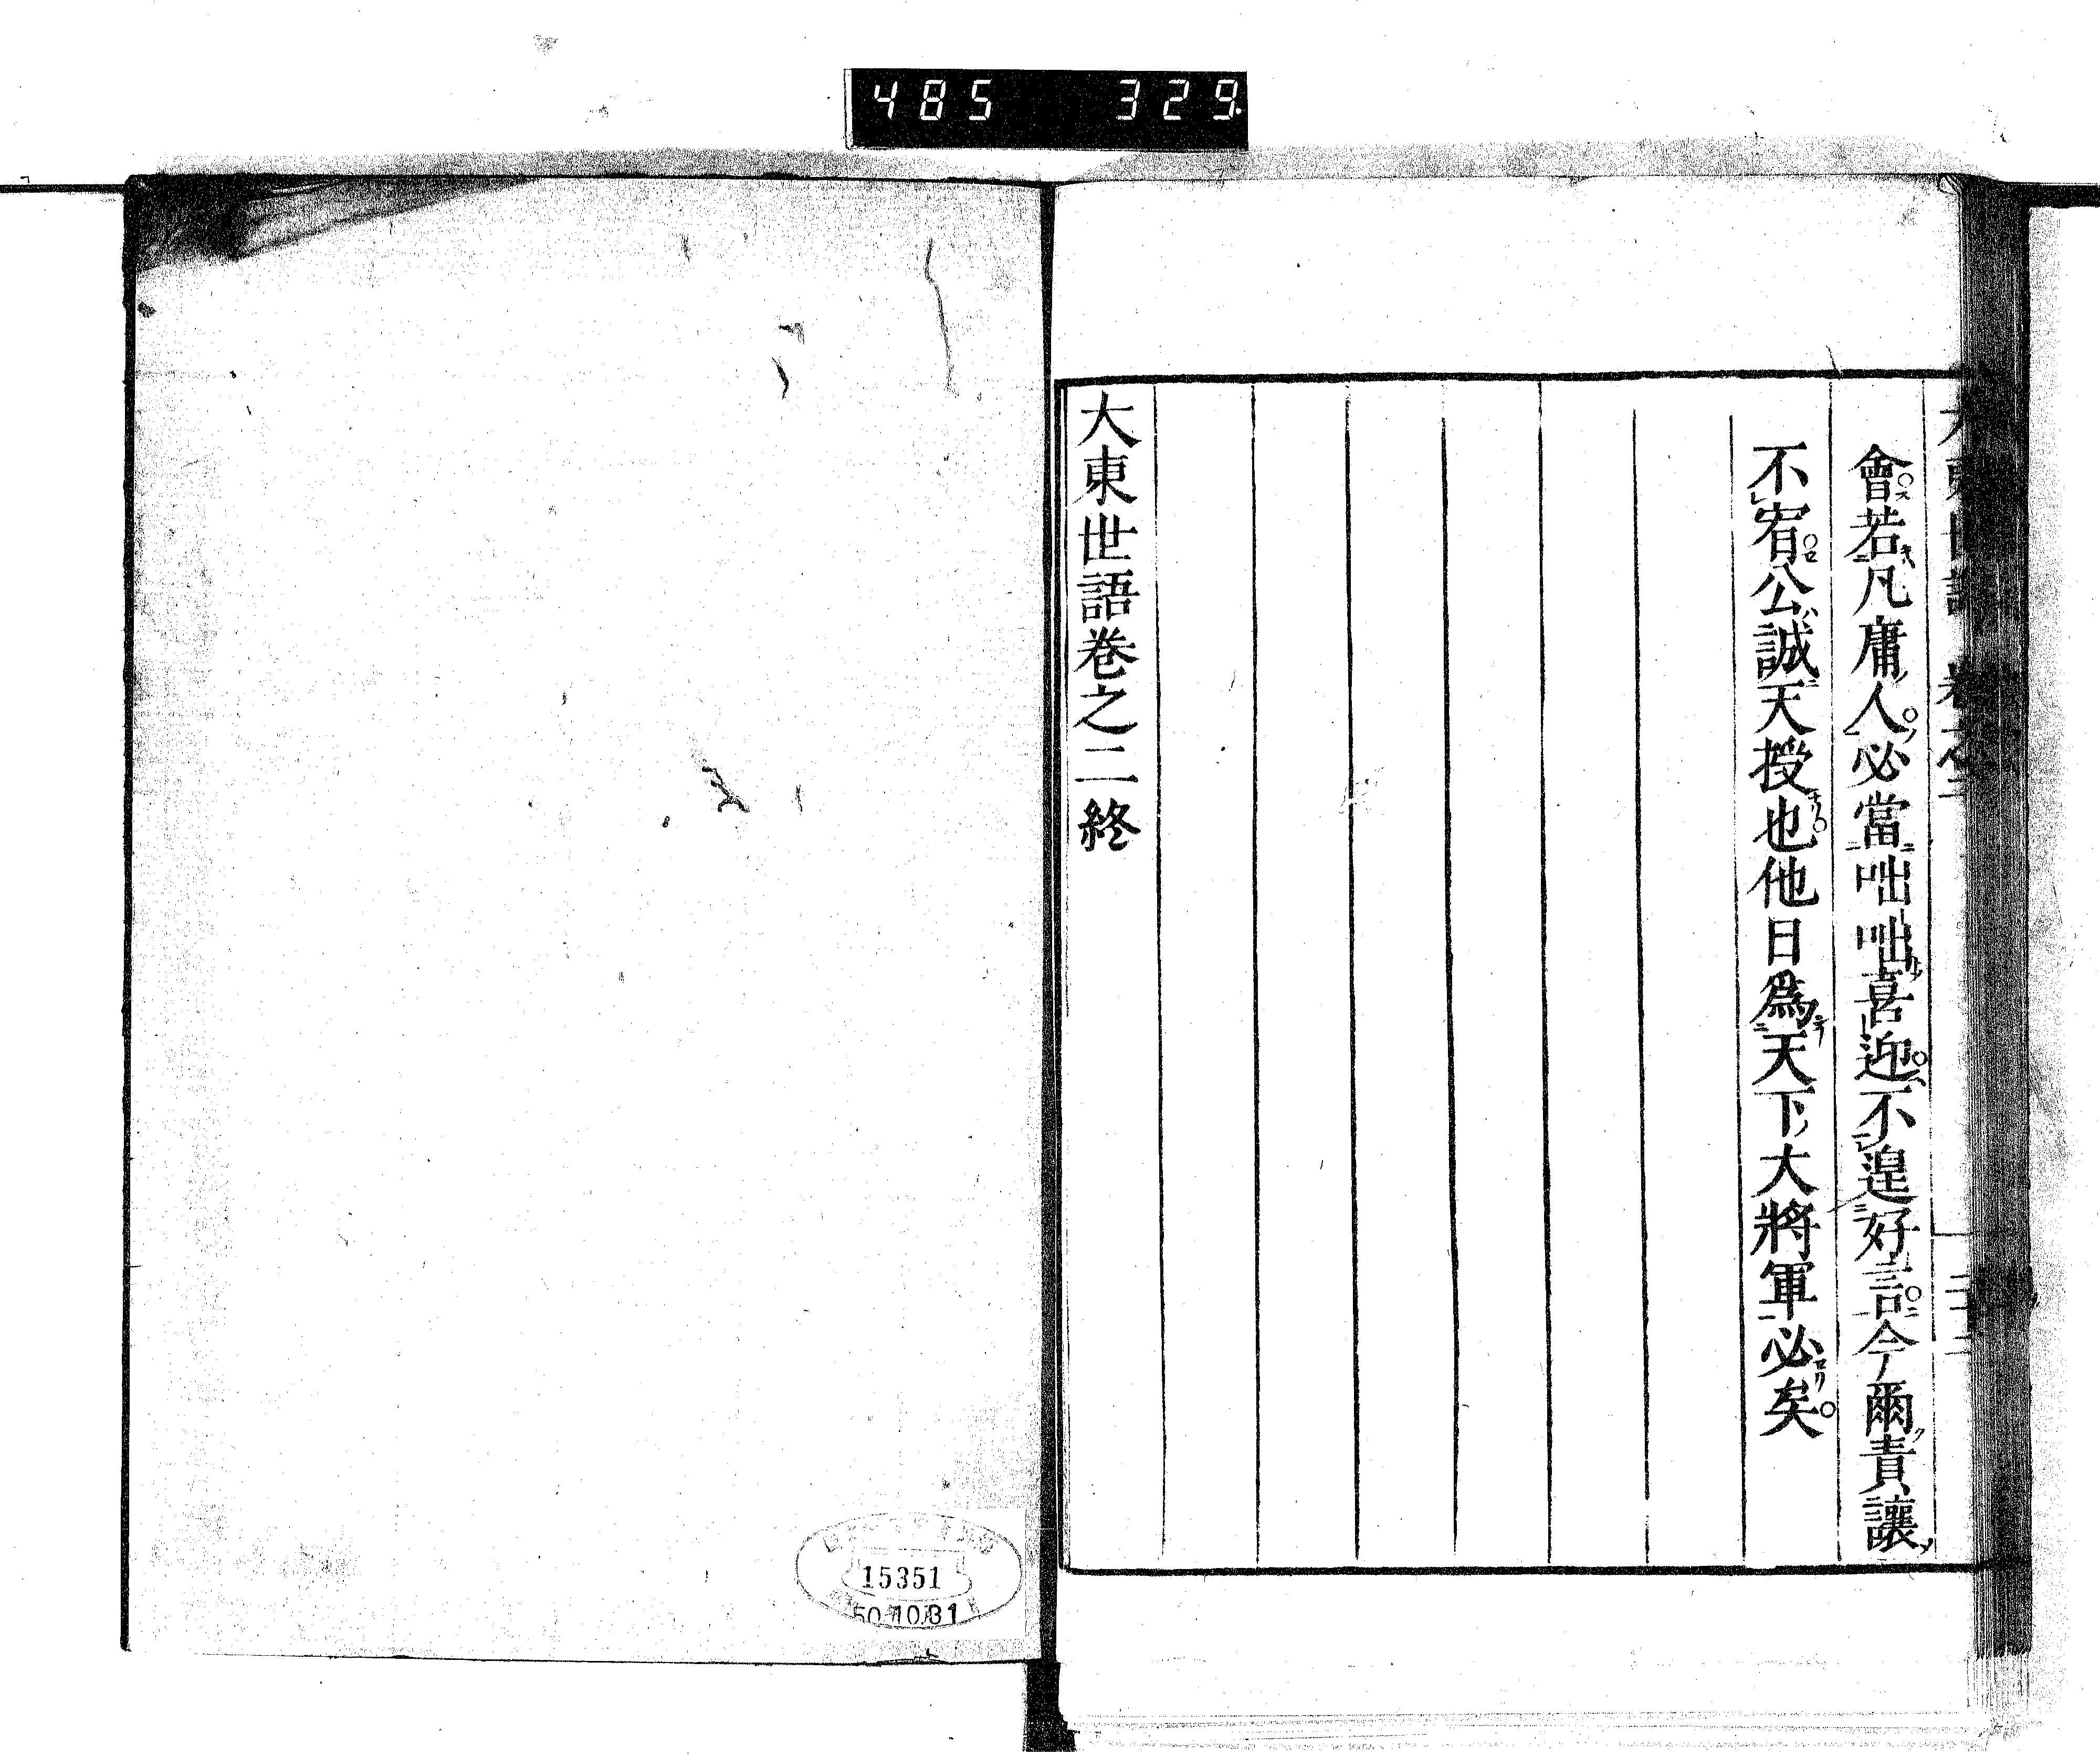 485 329
會若凡庸人必當咄咄喜迎不遑好言今爾責讓
不宥公誠天授也他日爲天下大將軍必矣
大東世語巻之二終
15351
50.10.31